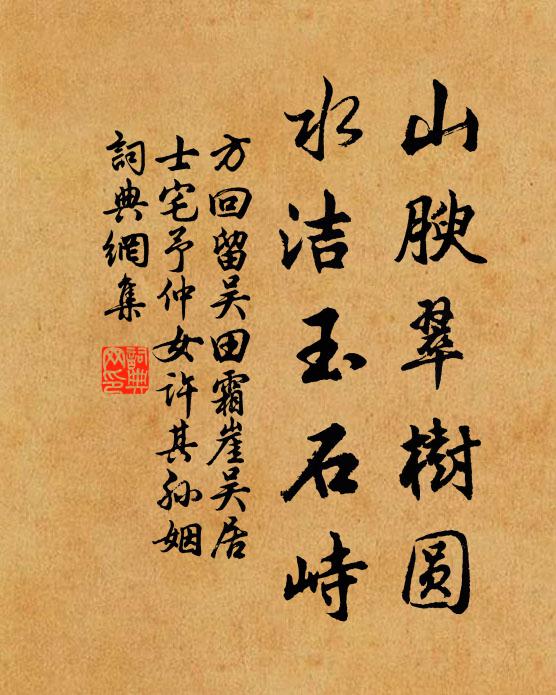 山腴翠樹圆
水洁玉石峙
方回留吴田霜崖吴居
士宅予仲女许其孙姻
詞典網集
詞典网印